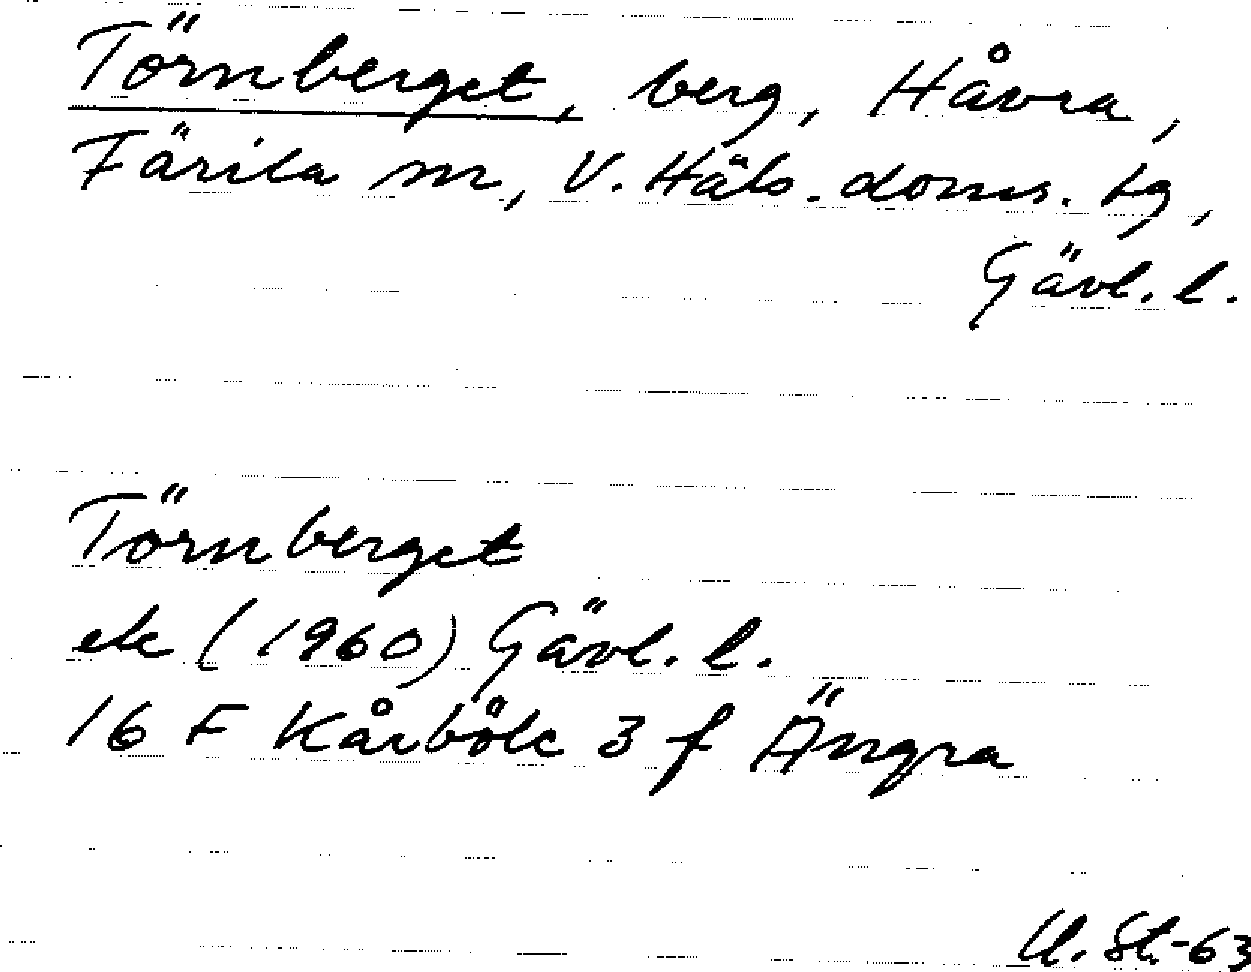 Törnberget, berg, Håvra,
Färila sn, V. Häls. doms. tg,
Gävl. l.
Törnberget
ek (1960) Gävl. l.
16 F Kårböle 3 f Ängra
-63